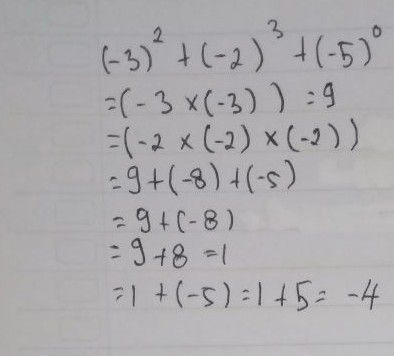 (-3)² + (-2)³ + (-5)⁰
=(-3 × (-3)) = 9
=(-2 × (-2) × (-2))
= 9 + (-8) + (-5)
= 9 + (-8)
= 9 + 8 = 1
= 1 + (-5) = 1 + 5 = -4